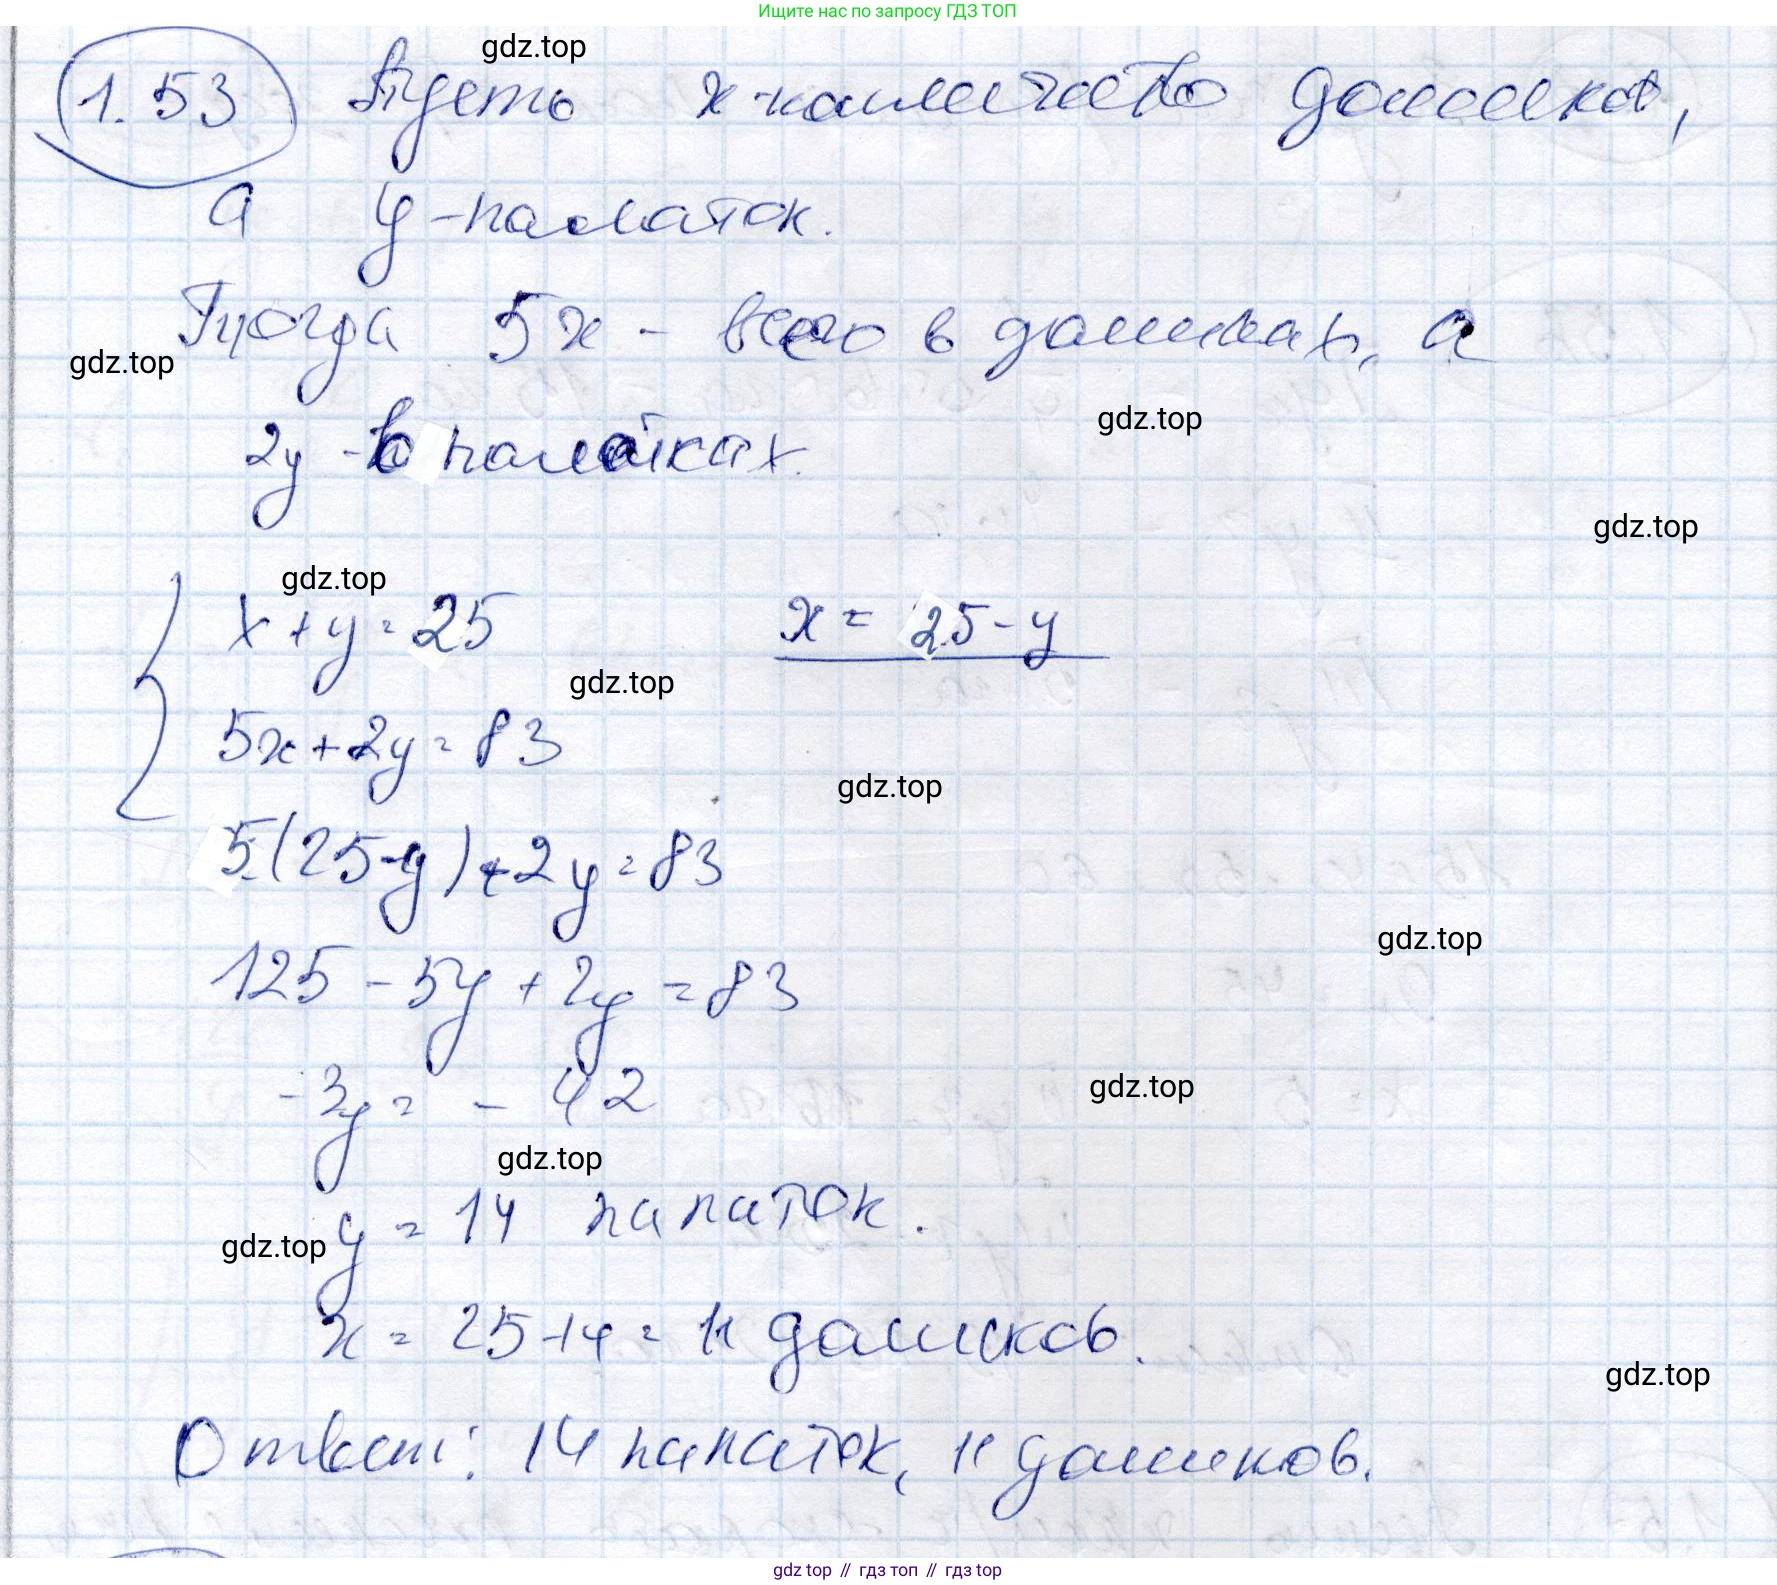 Ищите нас по запросу ГДЗ ТОП
gdz.top
1.53 Пусть x-количество домиков,
а y-палаток.
Тогда 5x - всего в домиках, а
gdz.top
gdz.top
2y - в палатках.
gdz.top
gdz.top
x+y=25 x = 25-y
gdz.top
5x+2y=83
gdz.top
5(25-y)+2y=83
gdz.top
125-5y+2y=83
gdz.top
-3y=-42
gdz.top
y=14 палаток.
gdz.top
x=25-14=11 домиков.
gdz.top
Ответ: 14 палаток, 11 домиков.
gdz top // гдз топ // gdz top